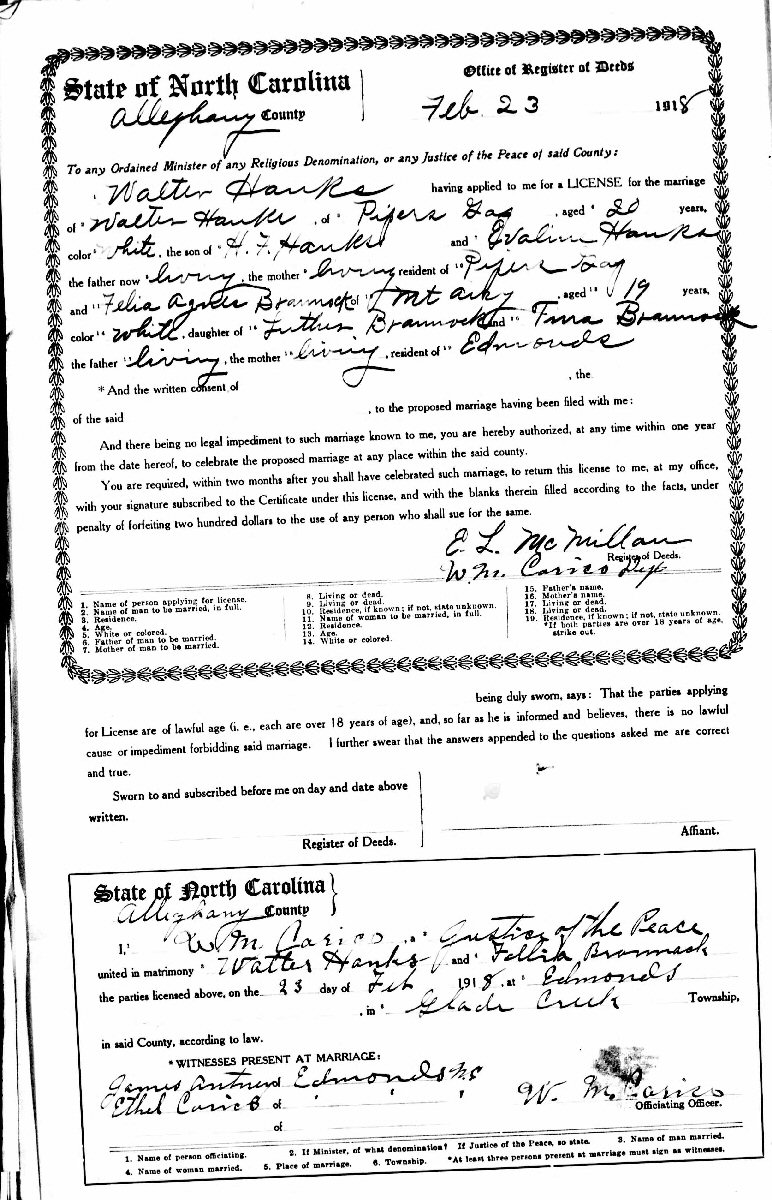 State of North Carolina
Office of Register of Deeds
Alleghany County
Feb. 23 1918
To any Ordained Minister of any Religious Denomination, or any Justice of the Peace of said County:
Walter Hanks having applied to me for a LICENSE for the marriage
of Walter Hanks, of Pipers Gap, aged 20 years,
color white, the son of H. F. Hanks and Evaline Hanks
the father now living, the mother living resident of Pipers Gap
and Felia Agnes Brannock of Mt airy, aged 19 years,
color white, daughter of Luther Brannock and Brannock
the father living, the mother living, resident of Edmonds
* And the written consent of , the
of the said , to the proposed marriage having been filed with me:
And there being no legal impediment to such marriage known to me, you are hereby authorized, at any time within one year
from the date hereof, to celebrate the proposed marriage at any place within the said county.
You are required, within two months after you shall have celebrated such marriage, to return this license to me, at my office,
with your signature subscribed to the Certificate under this license, and with the blanks therein filled according to the facts, under
penalty of forfeiting two hundred dollars to the use of any person who shall sue for the same.
E. L. McMillan
Register of Deeds.
W. M. Carico Dept
1. Name of person applying for license.
2. Name of man to be married, in full.
3. Residence.
4. Age.
5. White or colored.
6. Father of man to be married.
7. Mother of man to be married.
8. Living or dead.
9. Living or dead.
10. Residence, if known; if not, state unknown.
11. Name of woman to be married, in full.
12. Residence.
13. Age.
14. White or colored.
15. Father's name.
16. Mother's name.
17. Living or dead.
18. Living or dead.
19. Residence, if known; if not, state unknown.
*If both parties are over 18 years of age,
strike out.
being duly sworn, says: That the parties applying
for License are of lawful age (i. e., each are over 18 years of age), and, so far as he is informed and believes, there is no lawful
cause or impediment forbidding said marriage. I further swear that the answers appended to the questions asked me are correct
and true.
Sworn to and subscribed before me on day and date above
written.
Register of Deeds.
Affiant.
State of North Carolina
Alleghany County
I, W M Carico, a Justice of the Peace
united in matrimony Walter Hanks and Fellia Brannack
the parties licensed above, on the 23 day of Feb 1918, at Edmonds
, in Glade Creek Township,
in said County, according to law.
*WITNESSES PRESENT AT MARRIAGE:
James Edmonds N C
Ethel Carico of " " "
of
W. M. Carico
Officiating Officer.
1. Name of person officiating. 2. If Minister, of what denomination? If Justice of the Peace, so state. 3. Name of man married.
4. Name of woman married. 5. Place of marriage. 6. Township. *At least three persons present at marriage must sign as witnesses.